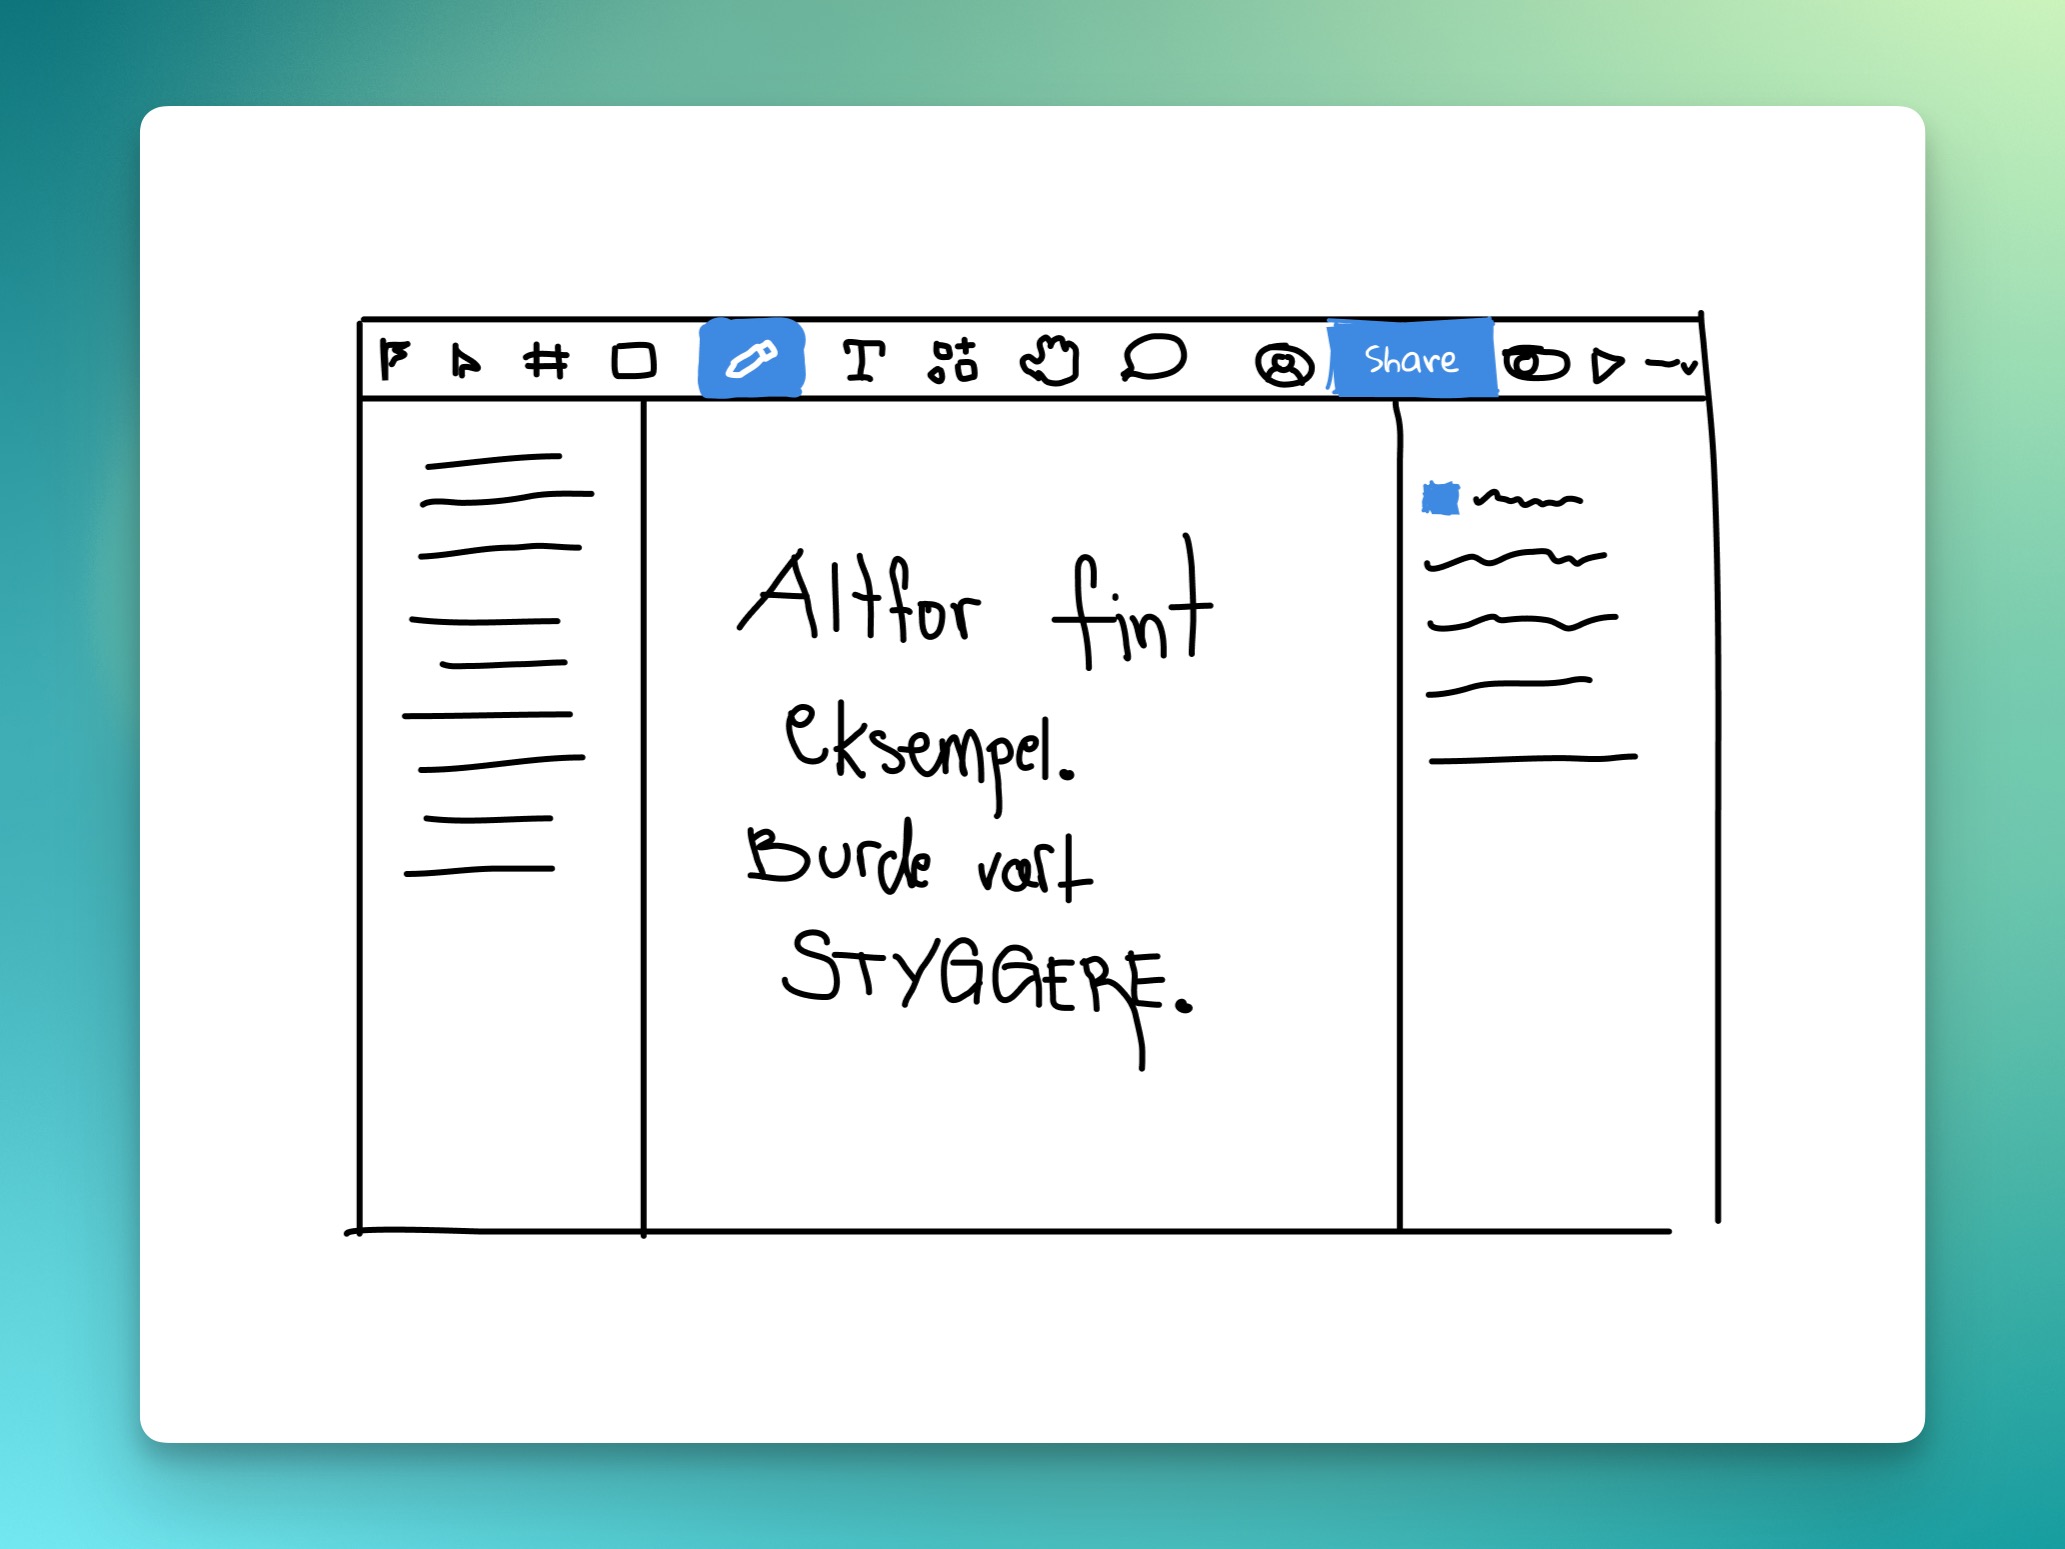 Share
Altfor fint
eksempel.
Burde vært
STYGGERE.